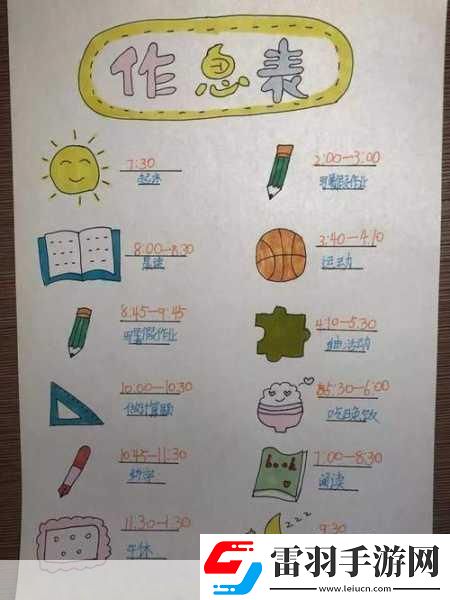 作息表
7:30
起床
8:00—8:30
晨读
8:45—9:45
写暑假作业
10:00—10:30
做计算题
10:45—11:30
练字
11:30—1:30
午休
2:00—3:00
写暑假作业
3:40—4:10
运动
4:10—5:30
自由活动
5:30—6:00
吃晚饭
book
7:00—8:30
阅读
zzz
9:30
雷羽手游网
www.leiucn.com